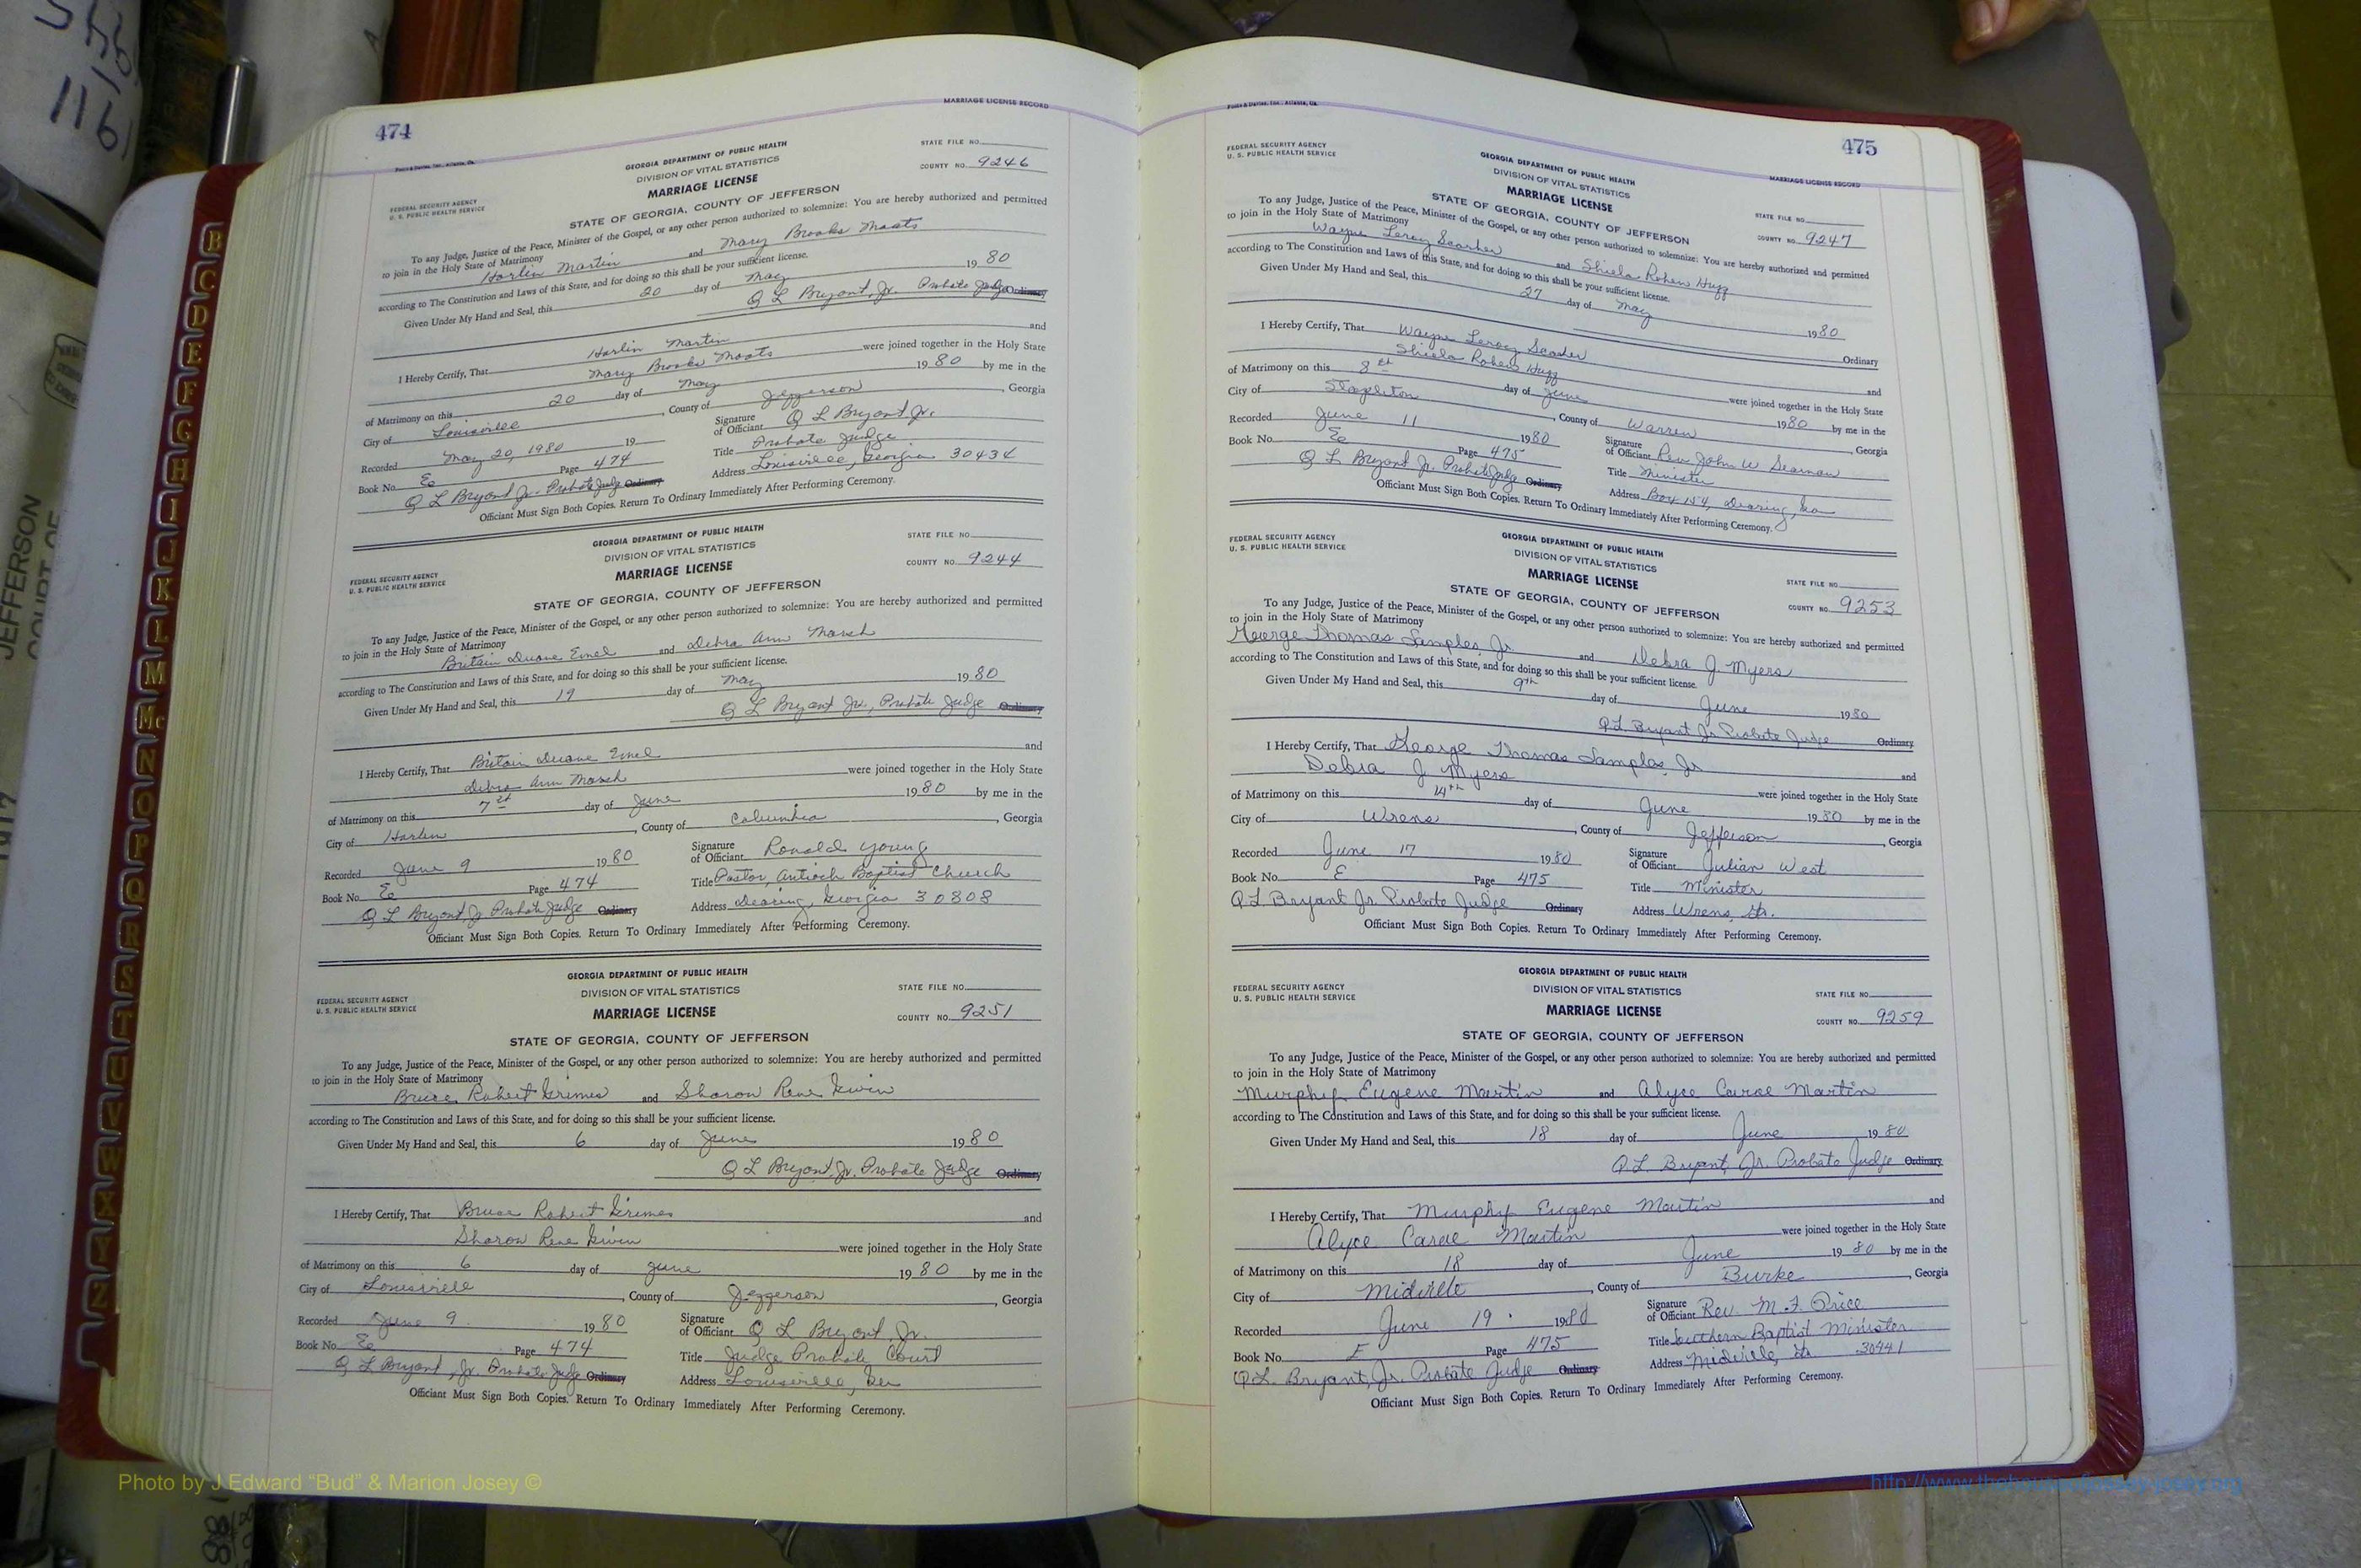 474
MARRIAGE LICENSE RECORD
GEORGIA DEPARTMENT OF PUBLIC HEALTH
DIVISION OF VITAL STATISTICS
MARRIAGE LICENSE
STATE FILE NO.
COUNTY NO. 9246
FEDERAL SECURITY AGENCY
U. S. PUBLIC HEALTH SERVICE
STATE OF GEORGIA, COUNTY OF JEFFERSON
To any Judge, Justice of the Peace, Minister of the Gospel, or any other person authorized to solemnize: You are hereby authorized and permitted
to join in the Holy State of Matrimony
Harlin Martin and Mary Brooks Moats
according to The Constitution and Laws of this State, and for doing so this shall be your sufficient license.
Given Under My Hand and Seal, this 20 day of May 1980
Q L Bryant, Jr. Probate Judge Ordinary
I Hereby Certify, That Harlin Martin and
Mary Brooks Moats were joined together in the Holy State
of Matrimony on this 20 day of May 1980 by me in the
City of Louisville, County of Jefferson, Georgia
Recorded May 20, 1980 19
Signature of Officiant Q L Bryant Jr.
Book No. Ee Page 474
Title Probate Judge
Q L Bryant Jr. Probate Judge Ordinary
Address Louisville, Georgia 30434
Officiant Must Sign Both Copies. Return To Ordinary Immediately After Performing Ceremony.
GEORGIA DEPARTMENT OF PUBLIC HEALTH
DIVISION OF VITAL STATISTICS
MARRIAGE LICENSE
STATE FILE NO.
COUNTY NO. 9244
FEDERAL SECURITY AGENCY
U. S. PUBLIC HEALTH SERVICE
STATE OF GEORGIA, COUNTY OF JEFFERSON
To any Judge, Justice of the Peace, Minister of the Gospel, or any other person authorized to solemnize: You are hereby authorized and permitted
to join in the Holy State of Matrimony
Britain Duane and Debra Ann Marsh
according to The Constitution and Laws of this State, and for doing so this shall be your sufficient license.
Given Under My Hand and Seal, this 19 day of May 1980
Q L Bryant Jr., Probate Judge Ordinary
I Hereby Certify, That Britain Duane and
Debra Ann Marsh were joined together in the Holy State
of Matrimony on this day of June 1980 by me in the
City of Harlem, County of Columbia, Georgia
Recorded June 9 1980
Signature of Officiant Ronald Young
Book No. Ee Page 474
Title Pastor, Antioch Baptist Church
Q L Bryant Jr Probate Judge Ordinary
Address Dearing, Georgia 30808
Officiant Must Sign Both Copies. Return To Ordinary Immediately After Performing Ceremony.
GEORGIA DEPARTMENT OF PUBLIC HEALTH
DIVISION OF VITAL STATISTICS
MARRIAGE LICENSE
STATE FILE NO.
COUNTY NO. 9251
FEDERAL SECURITY AGENCY
U. S. PUBLIC HEALTH SERVICE
STATE OF GEORGIA, COUNTY OF JEFFERSON
To any Judge, Justice of the Peace, Minister of the Gospel, or any other person authorized to solemnize: You are hereby authorized and permitted
to join in the Holy State of Matrimony
Bruce Robert Grimes and Sharon Rene
according to The Constitution and Laws of this State, and for doing so this shall be your sufficient license.
Given Under My Hand and Seal, this 6 day of June 1980
Q L Bryant, Jr. Probate Judge Ordinary
I Hereby Certify, That Bruce Robert Grimes and
Sharon Rene were joined together in the Holy State
of Matrimony on this 6 day of June 1980 by me in the
City of Louisville, County of Jefferson, Georgia
Recorded June 9 1980
Signature of Officiant Q L Bryant, Jr.
Book No. Ee Page 474
Title Judge Probate Court
Q L Bryant, Jr. Probate Judge Ordinary
Address Louisville, Ga
Officiant Must Sign Both Copies. Return To Ordinary Immediately After Performing Ceremony.
475
MARRIAGE LICENSE RECORD
FEDERAL SECURITY AGENCY
U. S. PUBLIC HEALTH SERVICE
GEORGIA DEPARTMENT OF PUBLIC HEALTH
DIVISION OF VITAL STATISTICS
MARRIAGE LICENSE
STATE OF GEORGIA, COUNTY OF JEFFERSON
STATE FILE NO.
COUNTY NO. 9247
To any Judge, Justice of the Peace, Minister of the Gospel, or any other person authorized to solemnize: You are hereby authorized and permitted
to join in the Holy State of Matrimony
Wayne Leroy and Shiela Huff
according to The Constitution and Laws of this State, and for doing so this shall be your sufficient license.
Given Under My Hand and Seal, this 27 day of May 1980
Ordinary
I Hereby Certify, That Wayne Leroy and
Shiela Huff were joined together in the Holy State
of Matrimony on this 8th day of June 1980 by me in the
City of Stapleton, County of Warren, Georgia
Recorded June 11 1980
Signature of Officiant Rev John W Seaman
Book No. Ee Page 475
Title Minister
Q L Bryant Jr Probate Judge Ordinary
Address Box 154, Dearing, Ga
Officiant Must Sign Both Copies. Return To Ordinary Immediately After Performing Ceremony.
FEDERAL SECURITY AGENCY
U. S. PUBLIC HEALTH SERVICE
GEORGIA DEPARTMENT OF PUBLIC HEALTH
DIVISION OF VITAL STATISTICS
MARRIAGE LICENSE
STATE OF GEORGIA, COUNTY OF JEFFERSON
STATE FILE NO.
COUNTY NO. 9253
To any Judge, Justice of the Peace, Minister of the Gospel, or any other person authorized to solemnize: You are hereby authorized and permitted
to join in the Holy State of Matrimony
George Thomas Samples, Jr. and Debra J. Myers
according to The Constitution and Laws of this State, and for doing so this shall be your sufficient license.
Given Under My Hand and Seal, this 9th day of June 1980
Q.L. Bryant Jr Probate Judge Ordinary
I Hereby Certify, That George Thomas Samples, Jr and
Debra J Myers were joined together in the Holy State
of Matrimony on this 14th day of June 1980 by me in the
City of Wrens, County of Jefferson, Georgia
Recorded June 17 1980
Signature of Officiant Julian West
Book No. E Page 475
Title Minister
Q.L. Bryant Jr. Probate Judge Ordinary
Address Wrens, Ga.
Officiant Must Sign Both Copies. Return To Ordinary Immediately After Performing Ceremony.
FEDERAL SECURITY AGENCY
U. S. PUBLIC HEALTH SERVICE
GEORGIA DEPARTMENT OF PUBLIC HEALTH
DIVISION OF VITAL STATISTICS
MARRIAGE LICENSE
STATE OF GEORGIA, COUNTY OF JEFFERSON
STATE FILE NO.
COUNTY NO. 9259
To any Judge, Justice of the Peace, Minister of the Gospel, or any other person authorized to solemnize: You are hereby authorized and permitted
to join in the Holy State of Matrimony
Murphy Eugene Martin and Alyce Carae Martin
according to The Constitution and Laws of this State, and for doing so this shall be your sufficient license.
Given Under My Hand and Seal, this 18 day of June 1980
Q.L. Bryant, Jr. Probate Judge Ordinary
I Hereby Certify, That Murphy Eugene Martin and
Alyce Carae Martin were joined together in the Holy State
of Matrimony on this 18 day of June 1980 by me in the
City of Midville, County of Burke, Georgia
Recorded June 19 1980
Signature of Officiant Rev. M. F. Price
Book No. E Page 475
Title Southern Baptist Minister
Q.L. Bryant, Jr. Probate Judge Ordinary
Address Midville, Ga 30441
Officiant Must Sign Both Copies. Return To Ordinary Immediately After Performing Ceremony.
B
C
D
E
F
G
H
I
J
K
L
M
Mc
N
O
P
Q
R
S
T
U
V
W
X
Y
Z
JEFFERSON
COURT OF
Photo by J Edward “Bud” & Marion Josey ©